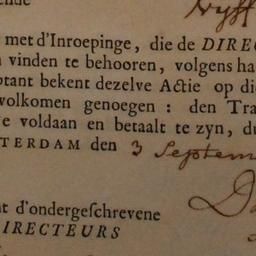 ende
met d'Inroepinge, die de DIREC
vinden te behooren, volgens ha
ptant bekent dezelve Actie op die
volkomen genoegen : den Tra
e voldaan en betaalt te zyn, du
STERDAM den 3 Septem
t d'ondergeschrevene
DIRECTEURS